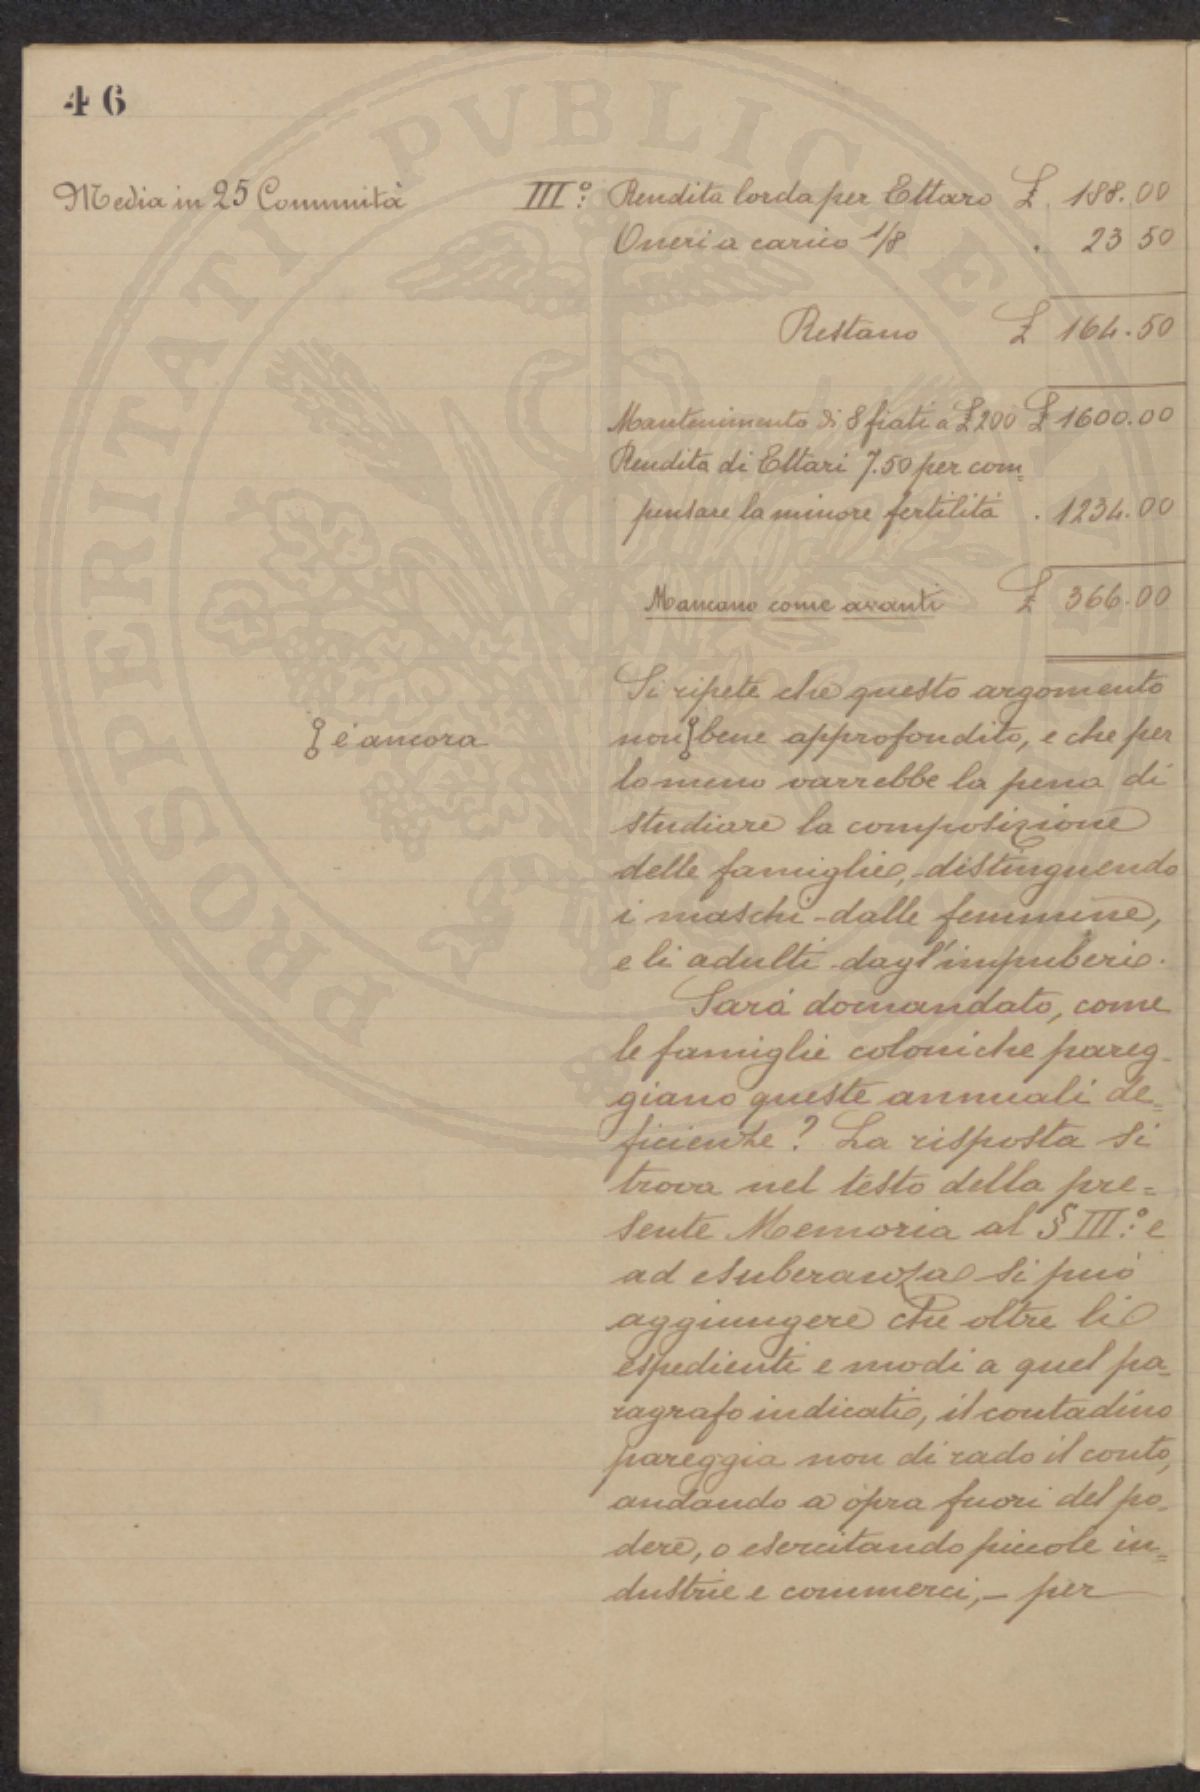 46
Media in 25 Communità
III°: Rendita lorda per Ettaro £ 188.00
Oneri a carico 1/8 . 23 50
Restano £ 164.50
Mantenimento di 8 fiati a £ 200 £ 1600.00
Rendita di Ettari 7.50 per com=
pensare la minore fertilità . 1234.00
Mancano come avanti £ 366.00
Si ripete che questo argomento
è ancora
non bene approfondito, e che per
lo meno varrebbe la pena di
studiare la composizione
delle famiglie, distinguendo
i maschi dalle femmine,
e li adulti dagl'impuberi.
Sarà domandato, come
le famiglie coloniche pareg-
giano queste annuali de=
ficienze? La risposta si
trova nel testo della pre=
sente Memoria al § III°: e
ad esuberanza si può
aggiungere che oltre li
espedienti e modi a quel pa-
ragrafo indicati, il contadino
pareggia non di rado il conto,
andando a òpra fuori del po-
dere, o esercitando piccole in=
dustrie e commerci, - per
PROSPERITATI PVBLICAE